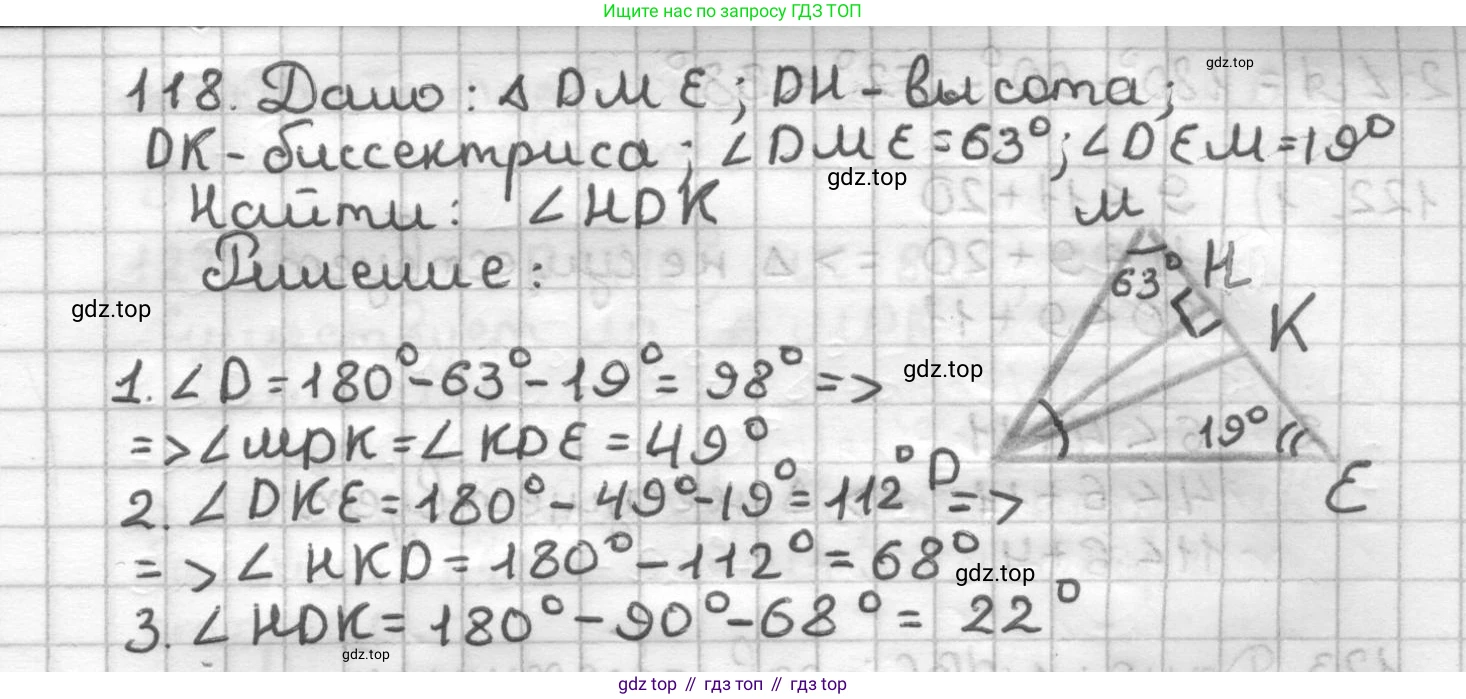 Ищите нас по запросу ГДЗ ТОП
gdz.top
118. Дано: △ DME; DH - высота;
DK - биссектриса; ∠DME = 63°; ∠DEM = 19°
gdz.top
Найти: ∠HDK
M
Решение:
63°
H
gdz.top
K
1. ∠D = 180° - 63° - 19° = 98° =>
gdz.top
=> ∠MDK = ∠KDE = 49°
19°
D
E
2. ∠DKE = 180° - 49° - 19° = 112° =>
=> ∠HKD = 180° - 112° = 68°
gdz.top
3. ∠HDK = 180° - 90° - 68° = 22°
gdz.top
gdz top // гдз топ // gdz top